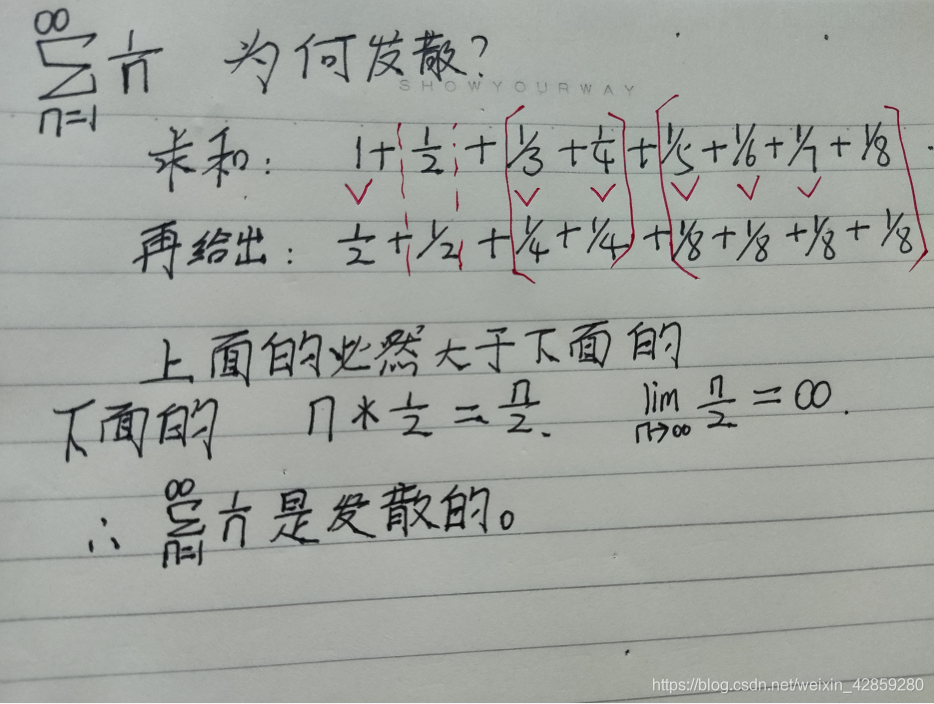 ∞
∑ 1/n 为何发散?
n=1
SHOWYOURWAY
求和: 1+ 1/2 + 1/3 + 1/4 + 1/5 + 1/6 + 1/7 + 1/8 .
再给出: 1/2 + 1/2 + 1/4 + 1/4 + 1/8 + 1/8 + 1/8 + 1/8
上面的必然大于下面的
下面的 n * 1/2 = n/2. lim n→∞ n/2 = ∞.
∴ ∑ n=1 ∞ 1/n 是发散的。
https://blog.csdn.net/weixin_42859280